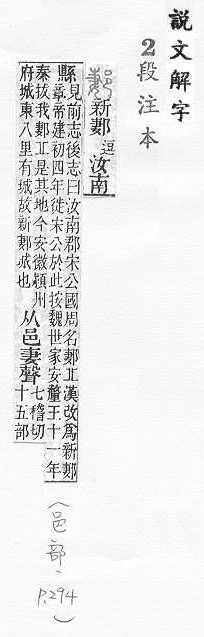 說文解字
2段注本
郪 新郪 逗 汝南
縣見前志後志曰汝南郡宋公國周名郪丘漢改爲新郪
章帝建初四年徙宋公於此按魏世家安釐王十一年
秦拔我郪丘是其地今安徽潁州
府城東八里有城故新郪城也
从邑妻聲
七稽切
十五部
（邑部、P.294）